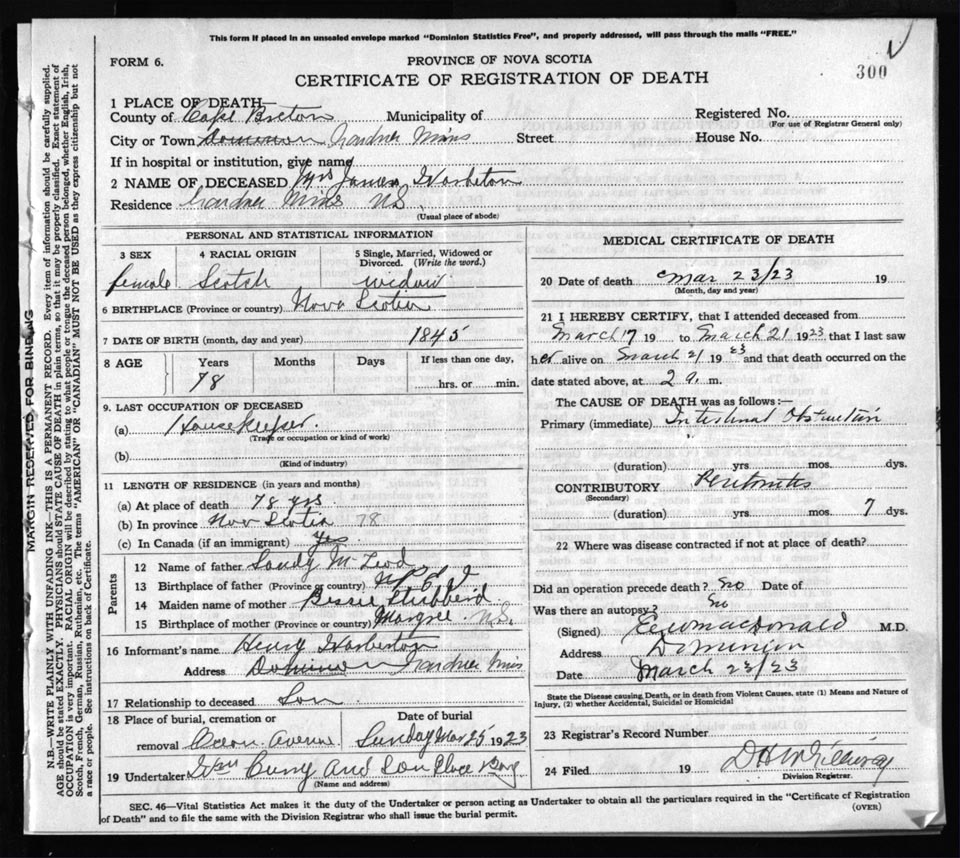 This form if placed in an unsealed envelope marked "Dominion Statistics Free", and properly addressed, will pass through the mails "FREE."
FORM 6.
PROVINCE OF NOVA SCOTIA
300
CERTIFICATE OF REGISTRATION OF DEATH
1 PLACE OF DEATH—
County of Cape Breton Municipality of Registered No.
(For use of Registrar General only)
City or Town Dominion Gardner Mines Street House No.
If in hospital or institution, give name
2 NAME OF DECEASED Mrs James
Residence Gardner Mines N.S.
(Usual place of abode)
PERSONAL AND STATISTICAL INFORMATION
3 SEX 4 RACIAL ORIGIN 5 Single, Married, Widowed or Divorced. (Write the word.)
female Scotch widow
6 BIRTHPLACE (Province or country) Nova Scotia
7 DATE OF BIRTH (month, day and year) 1845
8 AGE Years Months Days If less than one day,
78 hrs. or min.
9. LAST OCCUPATION OF DECEASED
(a) Housekeeper
(Trade or occupation or kind of work)
(b)
(Kind of industry)
11 LENGTH OF RESIDENCE (in years and months)
(a) At place of death 78 yrs
(b) In province Nov Scotia 78
(c) In Canada (if an immigrant) Yes
Parents
12 Name of father Sandy McLeod
13 Birthplace of father (Province or country) P E I
14 Maiden name of mother Bessie
15 Birthplace of mother (Province or country) Margree N.S.
16 Informant's name Henry
Address Dominion Gardner Mines
17 Relationship to deceased Son
18 Place of burial, cremation or removal Ocean Avenue
Date of burial Sunday Mar 25 1923
19 Undertaker Wm Curry and Son Glace Bay
(Name and address)
MEDICAL CERTIFICATE OF DEATH
20 Date of death Mar 23/23 19
(Month, day and year)
21 I HEREBY CERTIFY, that I attended deceased from
March 17 19 to March 21 1923 that I last saw
her alive on March 21 19 23 and that death occurred on the
date stated above, at 2 a. m.
The CAUSE OF DEATH was as follows:—
Primary (immediate) Intestinal Obstruction
(duration) yrs. mos. dys.
CONTRIBUTORY Peritonitis
(Secondary)
(duration) yrs. mos. 7 dys.
22 Where was disease contracted if not at place of death?
Did an operation precede death? No Date of
Was there an autopsy? No
(Signed) MacDonald M.D.
Address Dominion
Date March 23/23
State the Disease causing Death, or in death from Violent Causes, state (1) Means and Nature of
Injury, (2) whether Accidental, Suicidal or Homicidal
23 Registrar's Record Number
24 Filed 19
Division Registrar.
SEC. 46—Vital Statistics Act makes it the duty of the Undertaker or person acting as Undertaker to obtain all the particulars required in the "Certificate of Registration
of Death" and to file the same with the Division Registrar who shall issue the burial permit.
(OVER)
MARGIN RESERVED FOR BINDING
N.B.—WRITE PLAINLY WITH UNFADING INK—THIS IS A PERMANENT RECORD. Every item of information should be carefully supplied.
AGE should be stated EXACTLY. PHYSICIANS should STATE CAUSE OF DEATH in plain terms, so that it may be properly classified. Exact statement of
OCCUPATION is very important. RACIAL ORIGIN will be described by stating to what people or tongue the deceased person belonged, whether English, Irish,
Scotch, French, German, Russian, Ruthenian, etc. The terms "AMERICAN" or "CANADIAN" MUST NOT BE USED as they express citizenship but not
a race or people. See instructions on back of Certificate.